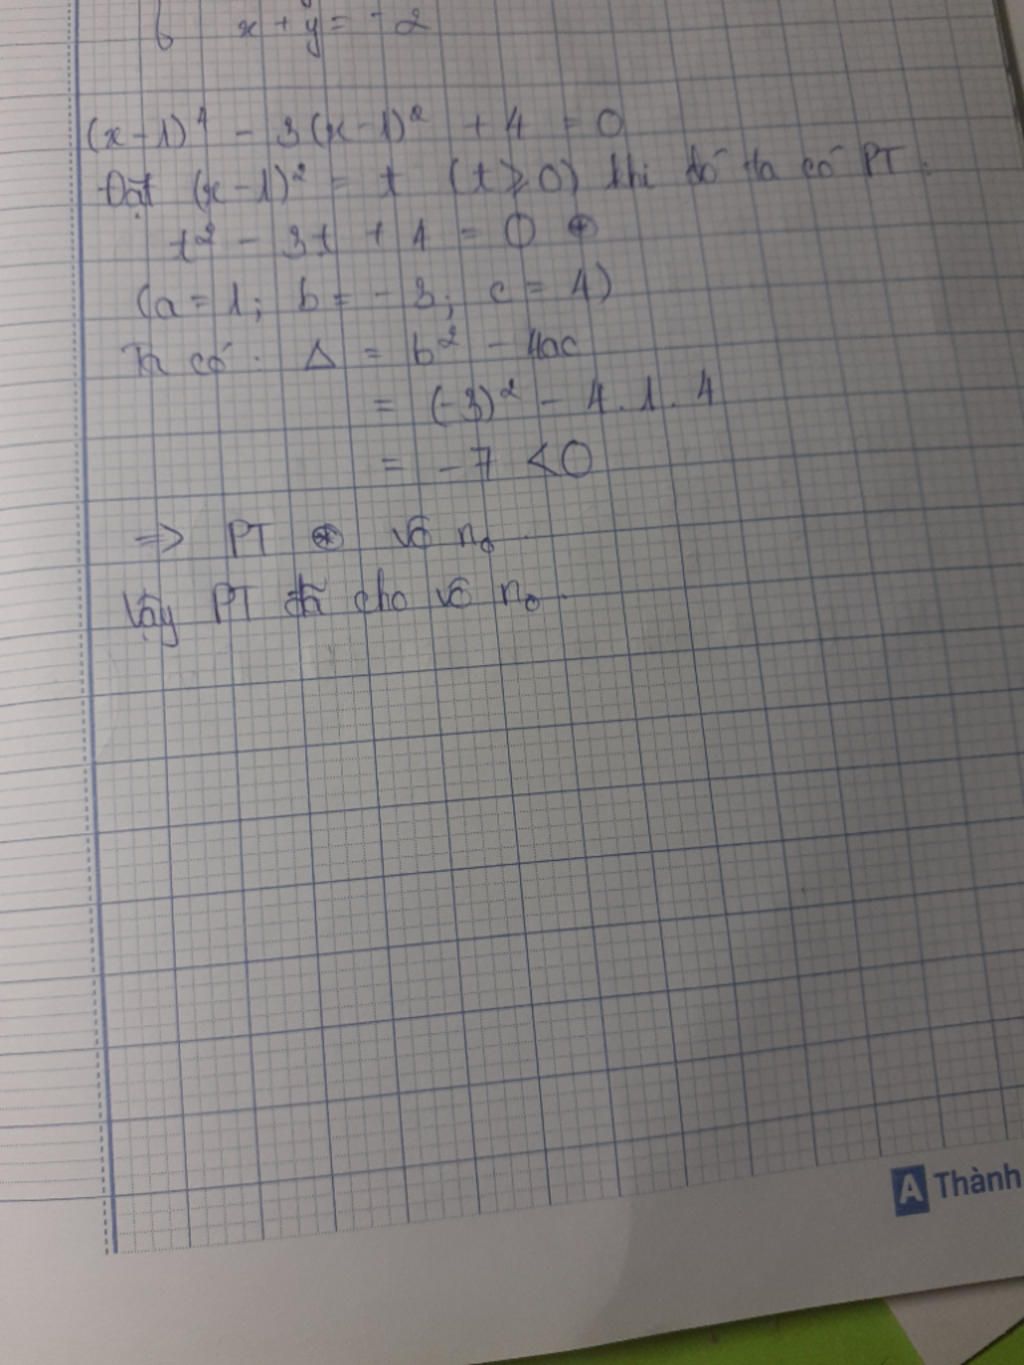 x + y = -2
(x-1)⁴ - 3(x-1)² + 4 = 0
Đặt (x-1)² = t (t ⩾ 0) khi đó ta có PT:
t² - 3t + 4 = 0 (*)
(a = 1; b = -3; c = 4)
Ta có: Δ = b² - 4ac
= (-3)² - 4.1.4
= -7 < 0
=> PT (*) vô n₀.
Vậy PT đã cho vô n₀.
A Thành